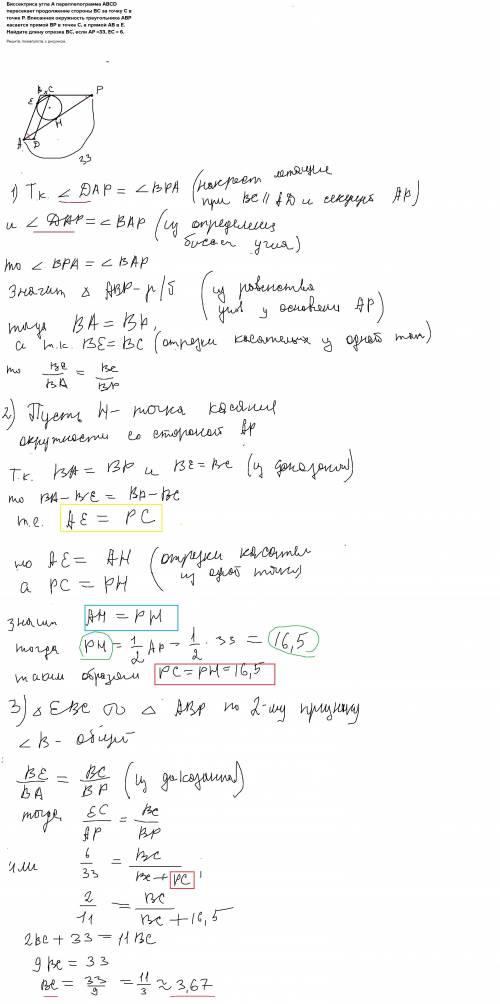 Биссектриса угла А параллелограмма ABCD
пересекает продолжение стороны BC за точку C в
точке P. Вписанная окружность треугольника ABP
касается прямой BP в точке C, а прямой AB в E.
Найдите длину отрезка BC, если AP =33, EC = 6.
Решите, пожалуйста, с рисунком.
B C P
E
H
A D
33
1) Т.к. ∠DAP = ∠BPA (накрест лежащие
при BC ∥ AD и секущей AP)
и ∠DAP = ∠BAP (из определения
биссек угла)
то ∠BPA = ∠BAP
значит △ ABP - р/б (из равенства
углов у основания AP)
тогда BA = BP,
а т.к. BE = BC (отрезки касательных из одной точ)
то BE/BA = BC/BP
2) Пусть H - точка касания
окружности со стороной AP
т.к. BA = BP и BE = BC (из доказания)
то BA - BE = BP - BC
т.е. AE = PC
но AE = AH (отрезки касател
а PC = PH из одной точки)
значит AH = PH
тогда PH = 1/2 AP = 1/2 · 33 = 16,5
таким образом PC = PH = 16,5
3) △ EBC ∾ △ ABP по 2-му признаку
∠B - общий
BE/BA = BC/BP (из доказанного)
тогда EC/AP = BC/BP
или 6/33 = BC/(BC + PC),
2/11 = BC/(BC + 16,5)
2BC + 33 = 11BC
9BC = 33
BC = 33/9 = 11/3 ≈ 3,67